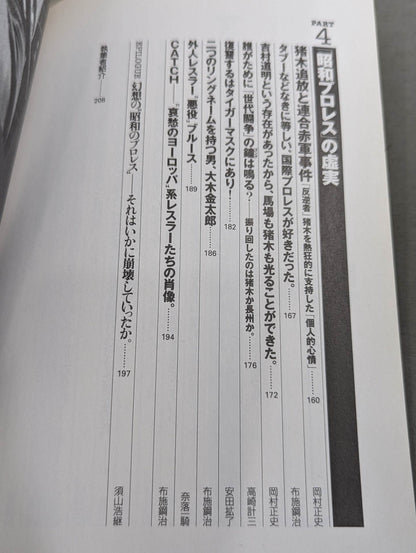 PART 4 「昭和プロレス」の虚実
猪木追放と連合赤軍事件 「反逆者」猪木を熱狂的に支持した「個人的心情」……… 160 岡村正史
タブーなどなきに等しい、国際プロレスが好きだった。……… 167 布施鋼治
吉村道明という存在があったから、馬場も猪木も光ることができた。……… 172 岡村正史
誰がために「世代闘争」の鐘は鳴る? 振り回したのは猪木か長州か。……… 176 高崎計三
復讐するはタイガーマスクにあり!……… 182 安田拡了
二つのリングネームを持つ男、大木金太郎……… 186 布施鋼治
外人レスラー“悪役”ブルース……… 189 奈落一騎
CATCH “哀愁のヨーロッパ”系レスラーたちの肖像。……… 194 布施鋼治
EPILOGUE 幻想の〝昭和のプロレス〟 それはいかに崩壊していったか。……… 197 須山浩継
執筆者紹介……… 208